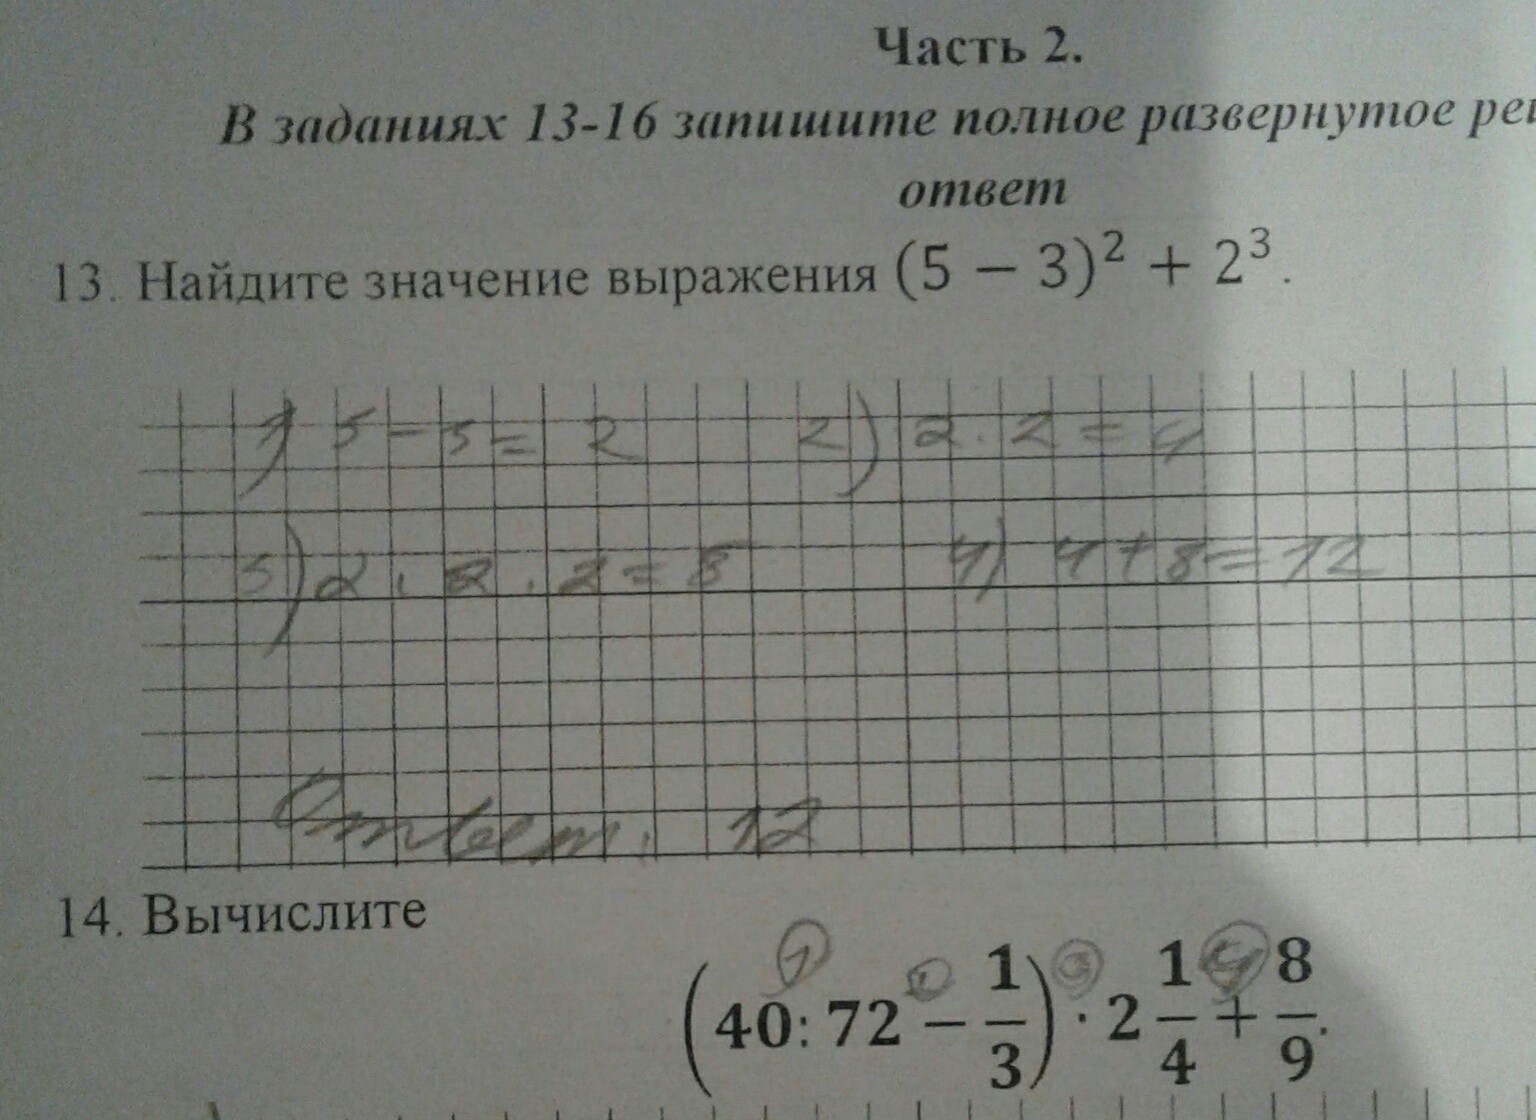 Часть 2.
В заданиях 13-16 запишите полное развернутое
ответ
13. Найдите значение выражения (5 − 3)² + 2³.
1) 5 − 3 = 2 2) 2 · 2 = 4
3) 2 · 2 · 2 = 8 4) 4 + 8 = 12
Ответ: 12
14. Вычислите
(40: 72 − 1/3) · 2 1/4 + 8/9.